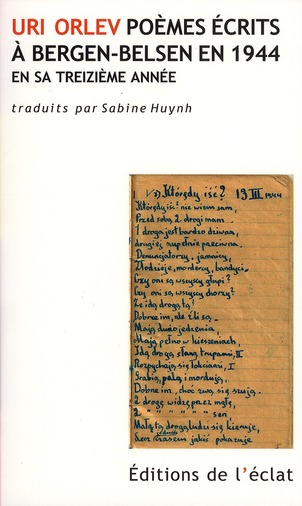 URI ORLEV POÈMES ÉCRITS
À BERGEN-BELSEN EN 1944
EN SA TREIZIÈME ANNÉE
traduits par Sabine Huynh
Którędy iść? 13 III 1944
Którędy iść? nie wiem sam,
Przed sobą 2 drogi mam.
1 droga jest bardzo dziwna,
drugiej zupełnie przeciwna.
Denuncjatorzy, jamnicy,
Złodzieje, mordercy, bandyci,
Czy oni są wszyscy głupi?
Czy oni są wszyscy chorzy?
Że idą drogą tą?
Dobrze im, ale źli są.
Mają dużo jedzenia,
Mają pełno w kieszeniach,
Idą drogą słaną trupami, II
Rozpychają się łokciami, I
Grabią, palą i mordują,
Dobrze im, choć zwą się szują.
2 drogę widzę przez mgłę,
2 " " " " " sen
Małą tą drogą ludzi się kieruje,
Lecz czasem jakiś pokazuje
Éditions de l'éclat